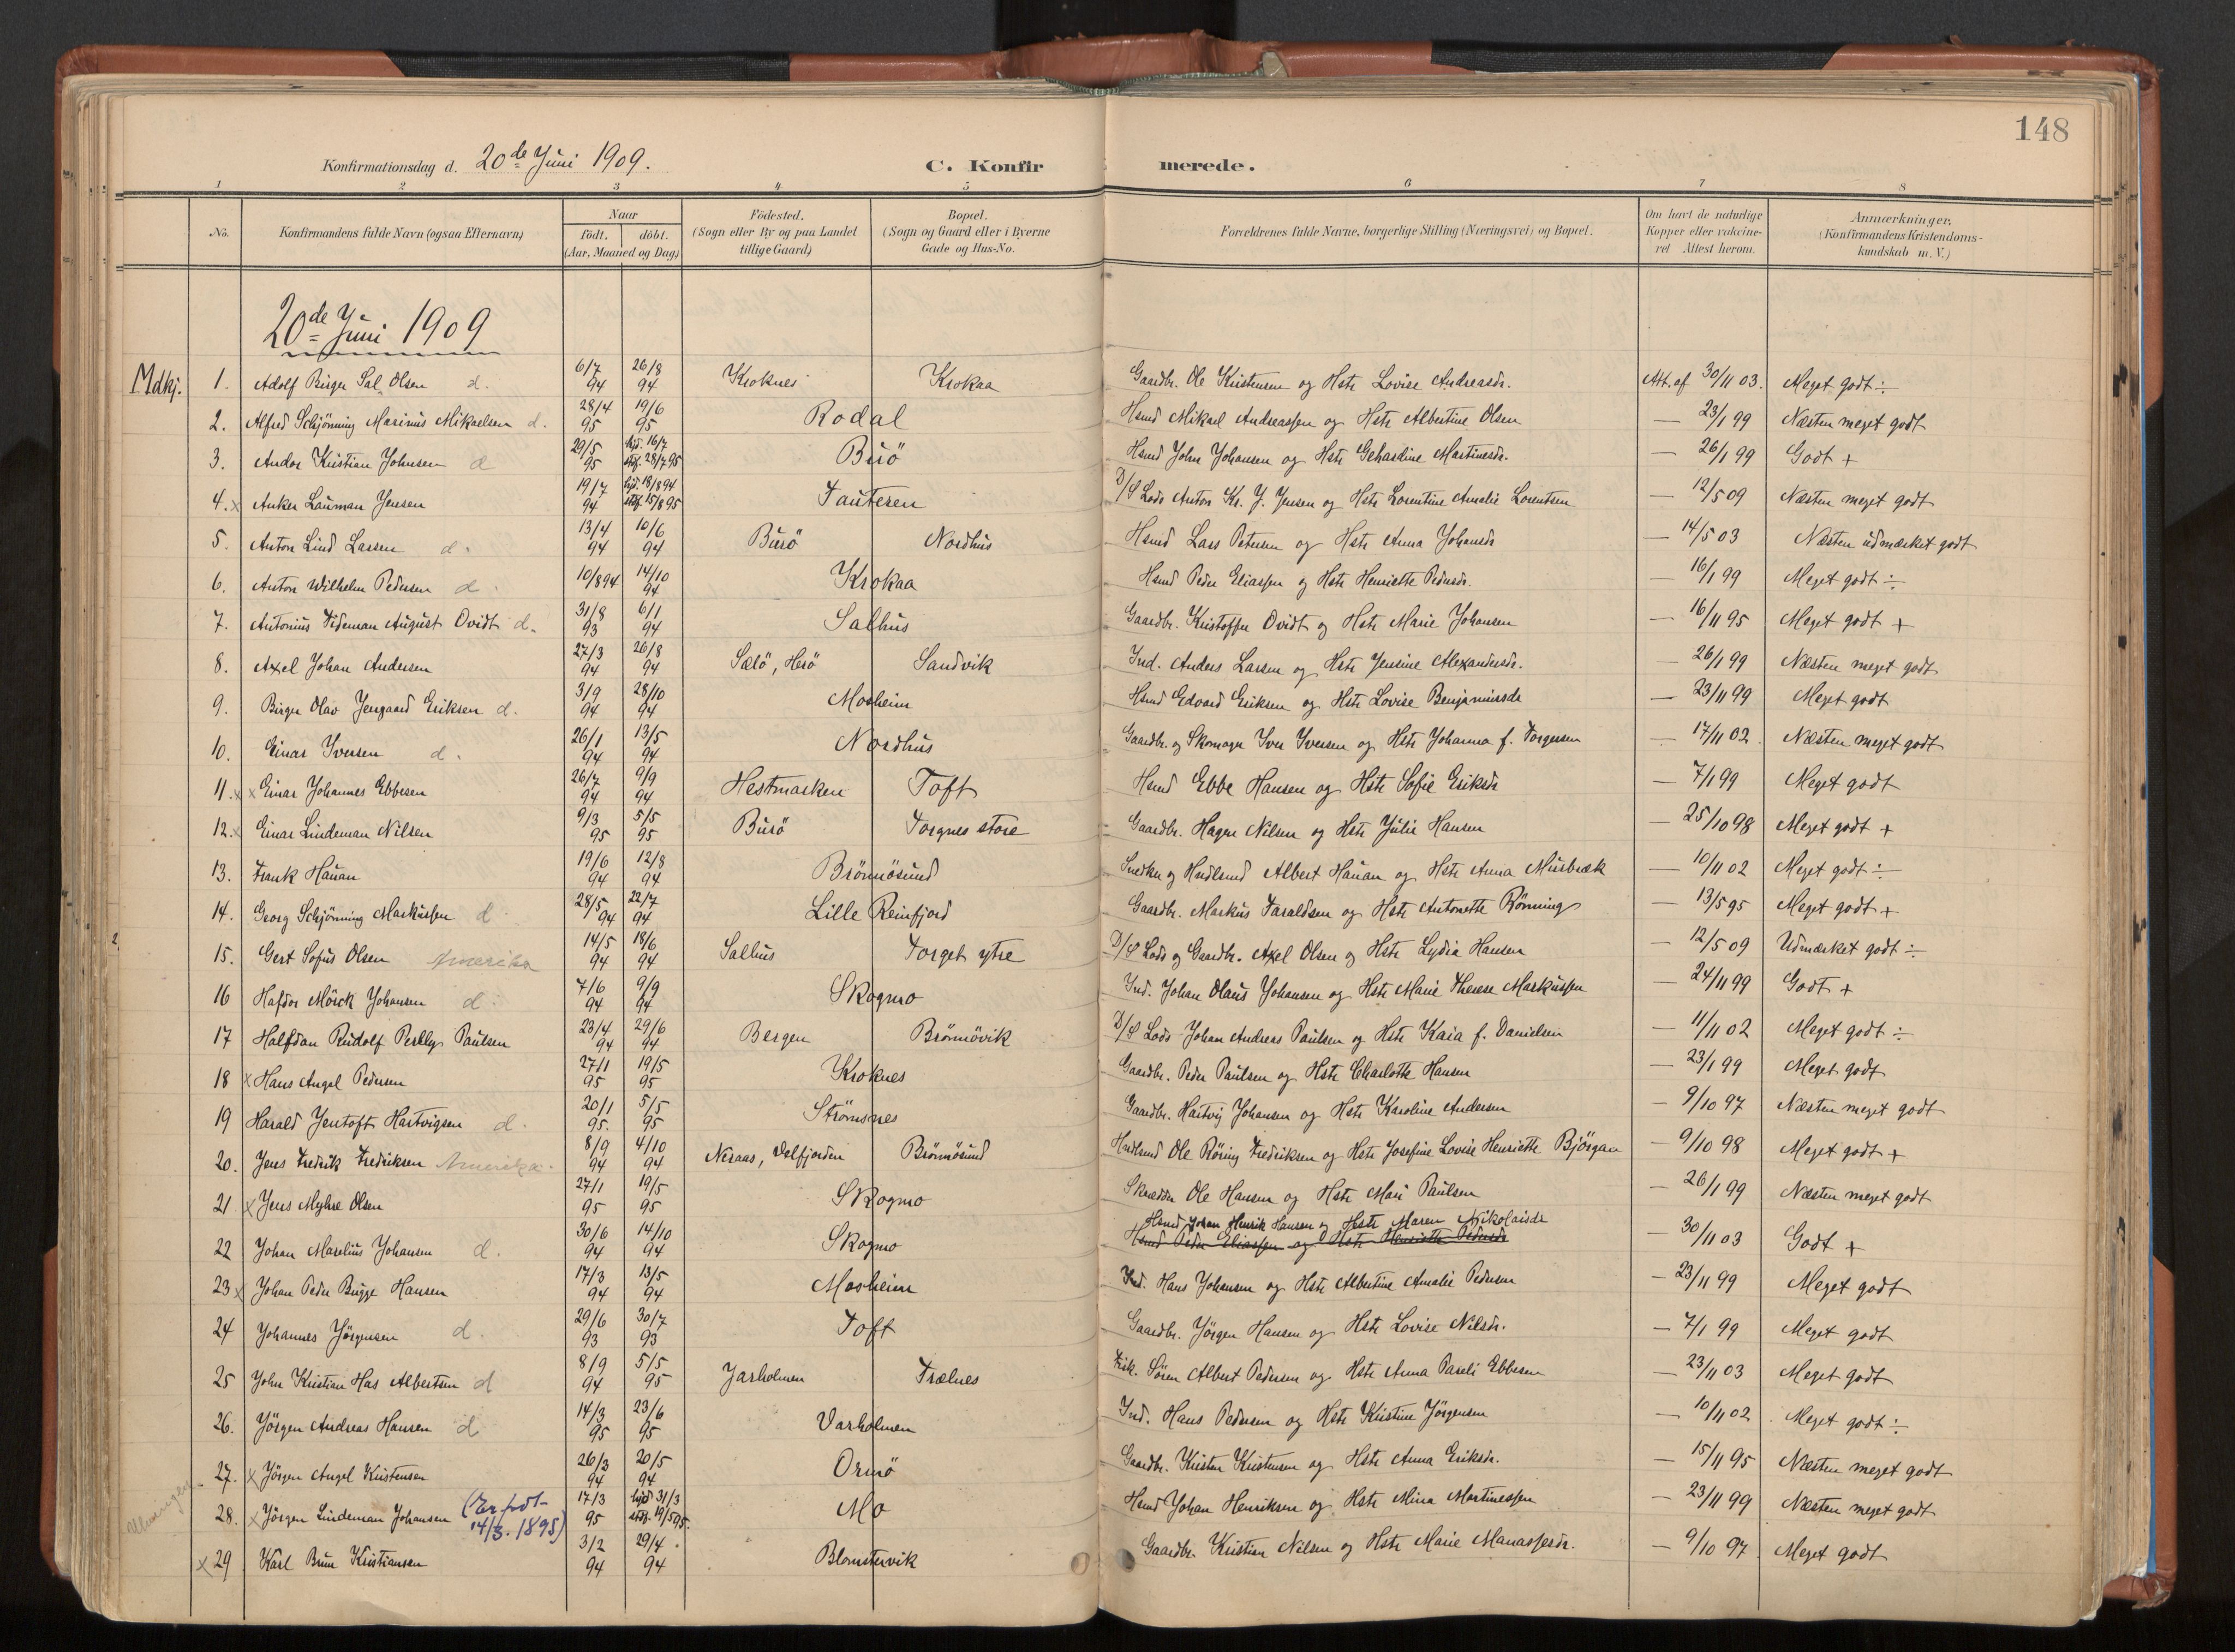 148
Konfirmationsdag d. 20de Juni 1909. C. Konfirmerede.
1 2 3 4 5 6 7 8
No. Konfirmandens fulde Navn (ogsaa Efternavn) Naar født. døbt. (Aar, Maaned og Dag) Födested. (Sogn eller By og paa Landet tillige Gaard) Bopæl. (Sogn og Gaard eller i Byerne Gade og Hus-No. Forældrenes fulde Navne, borgerlige Stilling (Næringsvei) og Bopæl. Om havt de naturlige Kopper eller vakcineret Attest herom. Anmærkninger. (Konfirmandens Kristendomskundskab m. V.)
20de Juni 1909
Mdkj. 1. Adolf Birger Sal. Olsen d. 6/7 94 26/8 94 Kroknes Krokaa Gaardbr. Ole Kristensen og Hstr Lovise Andreasdr. Att. af 30/11 03. Meget godt ÷
2. Alfred Schjönning Marinus Mikaelsen d. 28/4 95 19/6 95 Rodal Hsmd Mikael Andreassen og Hstr Albertine Olsen — 23/1 99 Næsten meget godt
3. Andor Kristian Johnsen d 29/5 95 hjd. 16/7 stf. 28/7 95 Burö Hsmd John Johansen og Hstr Gehardine Martinesdr. — 26/1 99 Godt +
4. x Anker Lauman Jensen 19/7 94 hjd. 18/8 94 stf. 15/8 95 Tauteren D/S Lods Anton Kr. J. Jensen og Hstr Lorentine Amalie Lorentsen — 12/5 09 Næsten meget godt
5. Anton Lind Larsen d. 13/4 94 10/6 94 Burö Nordhus Hsmd Lars Petersen og Hstr Anna Johansdr — 14/5 03 Næsten udmærket godt
6. Anton Wilhelm Pedersen d. 10/8 94 14/10 94 Krokaa Hsmd Peder Eliassen og Hstr Henriette Pedersdr. — 16/1 99 Meget godt ÷
7. Antonius Tideman August Ovidt d. 31/8 93 6/1 94 Salhus Gaardbr. Kristoffer Ovidt og Hstr Marie Johansen — 16/11 95 Meget godt +
8. Axel Johan Andersen 27/3 94 26/8 94 Sælö, Herö Sandvik Ind. Anders Larsen og Hstr Jensine Alexandersdr. — 26/1 99 Næsten meget godt
9. Birger Olav Jengaard Eriksen d. 3/9 94 28/10 94 Mosheim Hsmd Edvard Eriksen og Hstr Lovise Benjaminsdr — 23/11 99 Meget godt
10. Einar Iversen d. 26/1 94 13/5 94 Nordhus Gaardbr. og Skomager Iver Iversen og Hstr Johanna f. Torgersen — 17/11 02. Næsten meget godt
11. x x Einar Johannes Ebbesen 26/7 94 9/9 94 Hestmarken Toft Hsmd Ebbe Hansen og Hstr Sofie Eriksdr — 7/1 99 Meget godt
12. x Einar Lindeman Nilsen 9/3 95 5/5 95 Burö Torgnes store Gaardbr. Hagen Nilsen og Hstr Julie Hansen — 25/10 98 Meget godt +
13. Frank Hauan 19/6 94 12/8 94 Brönnösund Snedker og Hndlsmd Albert Hauan og Hstr Anna Musbræk — 10/11 02 Meget godt ÷
14. Georg Schjönning Markussen d 28/5 94 22/7 94 Lille Reinfjord Gaardbr. Markus Taraldsen og Hstr Antonette Rönning — 13/5 95 Meget godt +
15. Gert Sofus Olsen Amerika 14/5 94 18/6 94 Salhus Torget ytre D/S Lods og Gaardbr. Axel Olsen og Hstr Lydia Hansen — 12/5 09 Udmærket godt ÷
16 Hafdor Mörck Johansen d. 7/6 94 9/9 94 Skogmo Ind. Johan Olaus Johansen og Hstr Marie Therese Markussen — 24/11 99 Godt +
17 Halfdan Rudolf Perlly Paulsen 23/4 94 29/6 94 Bergen Brönnövik D/S Lods Johan Andreas Paulsen og Hstr Kaia f. Danielsen — 11/11 02 Meget godt ÷
18 x Hans Angel Pedersen 27/1 95 19/5 95 Kroknes Gaardbr. Peder Paulsen og Hstr Charlotte Hansen — 23/1 99 Meget godt
19 Harald Jentoft Hartvigsen d. 20/1 95. 5/5 95 Strömsnes Gaardbr. Hartvig Johansen og Hstr Karoline Andersen — 9/10 97 Næsten meget godt
20. Jens Fredrik Fredriksen Amerika. 8/9 94 4/10 94 Neraas, Velfjorden Brönnösund Hndlsmd Ole Röring Fredriksen og Hstr Josefine Lovise Henriette Bjørgan — 9/10 98 Meget godt +
21 x Jens Myhre Olsen 27/1 95 19/5 95 Skogmo Skrædder Ole Hansen og Hstr Mari Paulsen — 26/1 99 Næsten meget godt
Hsmd Johan Henrik Hansen og Hstr Maren Nikolaisdr
22 Johan Marelius Johansen d. 30/6 94 14/10 94 Skogmo Hsmd Peder Eliassen og Hstr Henriette Pedersdr — 30/11 03 Godt +
23 x Johan Peder Bugge Hansen 17/3 94 13/5 94 Mosheim Ind. Hans Johansen og Hstr Albertine Amalie Pedersen — 23/11 99 Meget godt
24 Johannes Jörgensen d. 29/6 93 30/7 93 Toft Gaardbr. Jörgen Hansen og Hstr Lovise Nilsdr. — 7/1 99 Meget godt
25 John Kristian Has Albertsen d 8/9 94 5/5 95 Jarholmen Trælnes Fisk. Sören Albert Pedersen og Hstr Anna Pareli Ebbesen — 23/11 03 Meget godt
26. Jörgen Andreas Hansen d 14/3 95 23/6 95 Varholmen Ind. Hans Pedersen og Hstr Kristine Jörgensen — 10/11 02. Meget godt ÷
27. x Jörgen Angel Kristensen 26/3 94 20/5 94 Ormö Gaardbr. Kristen Kristensen og Hstr Anna Eriksdr. — 15/11 95 Næsten meget godt
28. x Jörgen Lindeman Johansen (Er født 14/3. 1895) 17/3 95 hjd 31/3 stf. 19/5 95. Mo Hsmd Johan Henriksen og Hstr Mina Martinessen — 23/11 99 Næsten meget godt
x 29 Karl Brun Kristiansen 3/2 94 29/4 94 Blomstervik Gaardbr. Kristian Nilsen og Hstr Marie Manassesdr. — 9/10 97 Meget godt